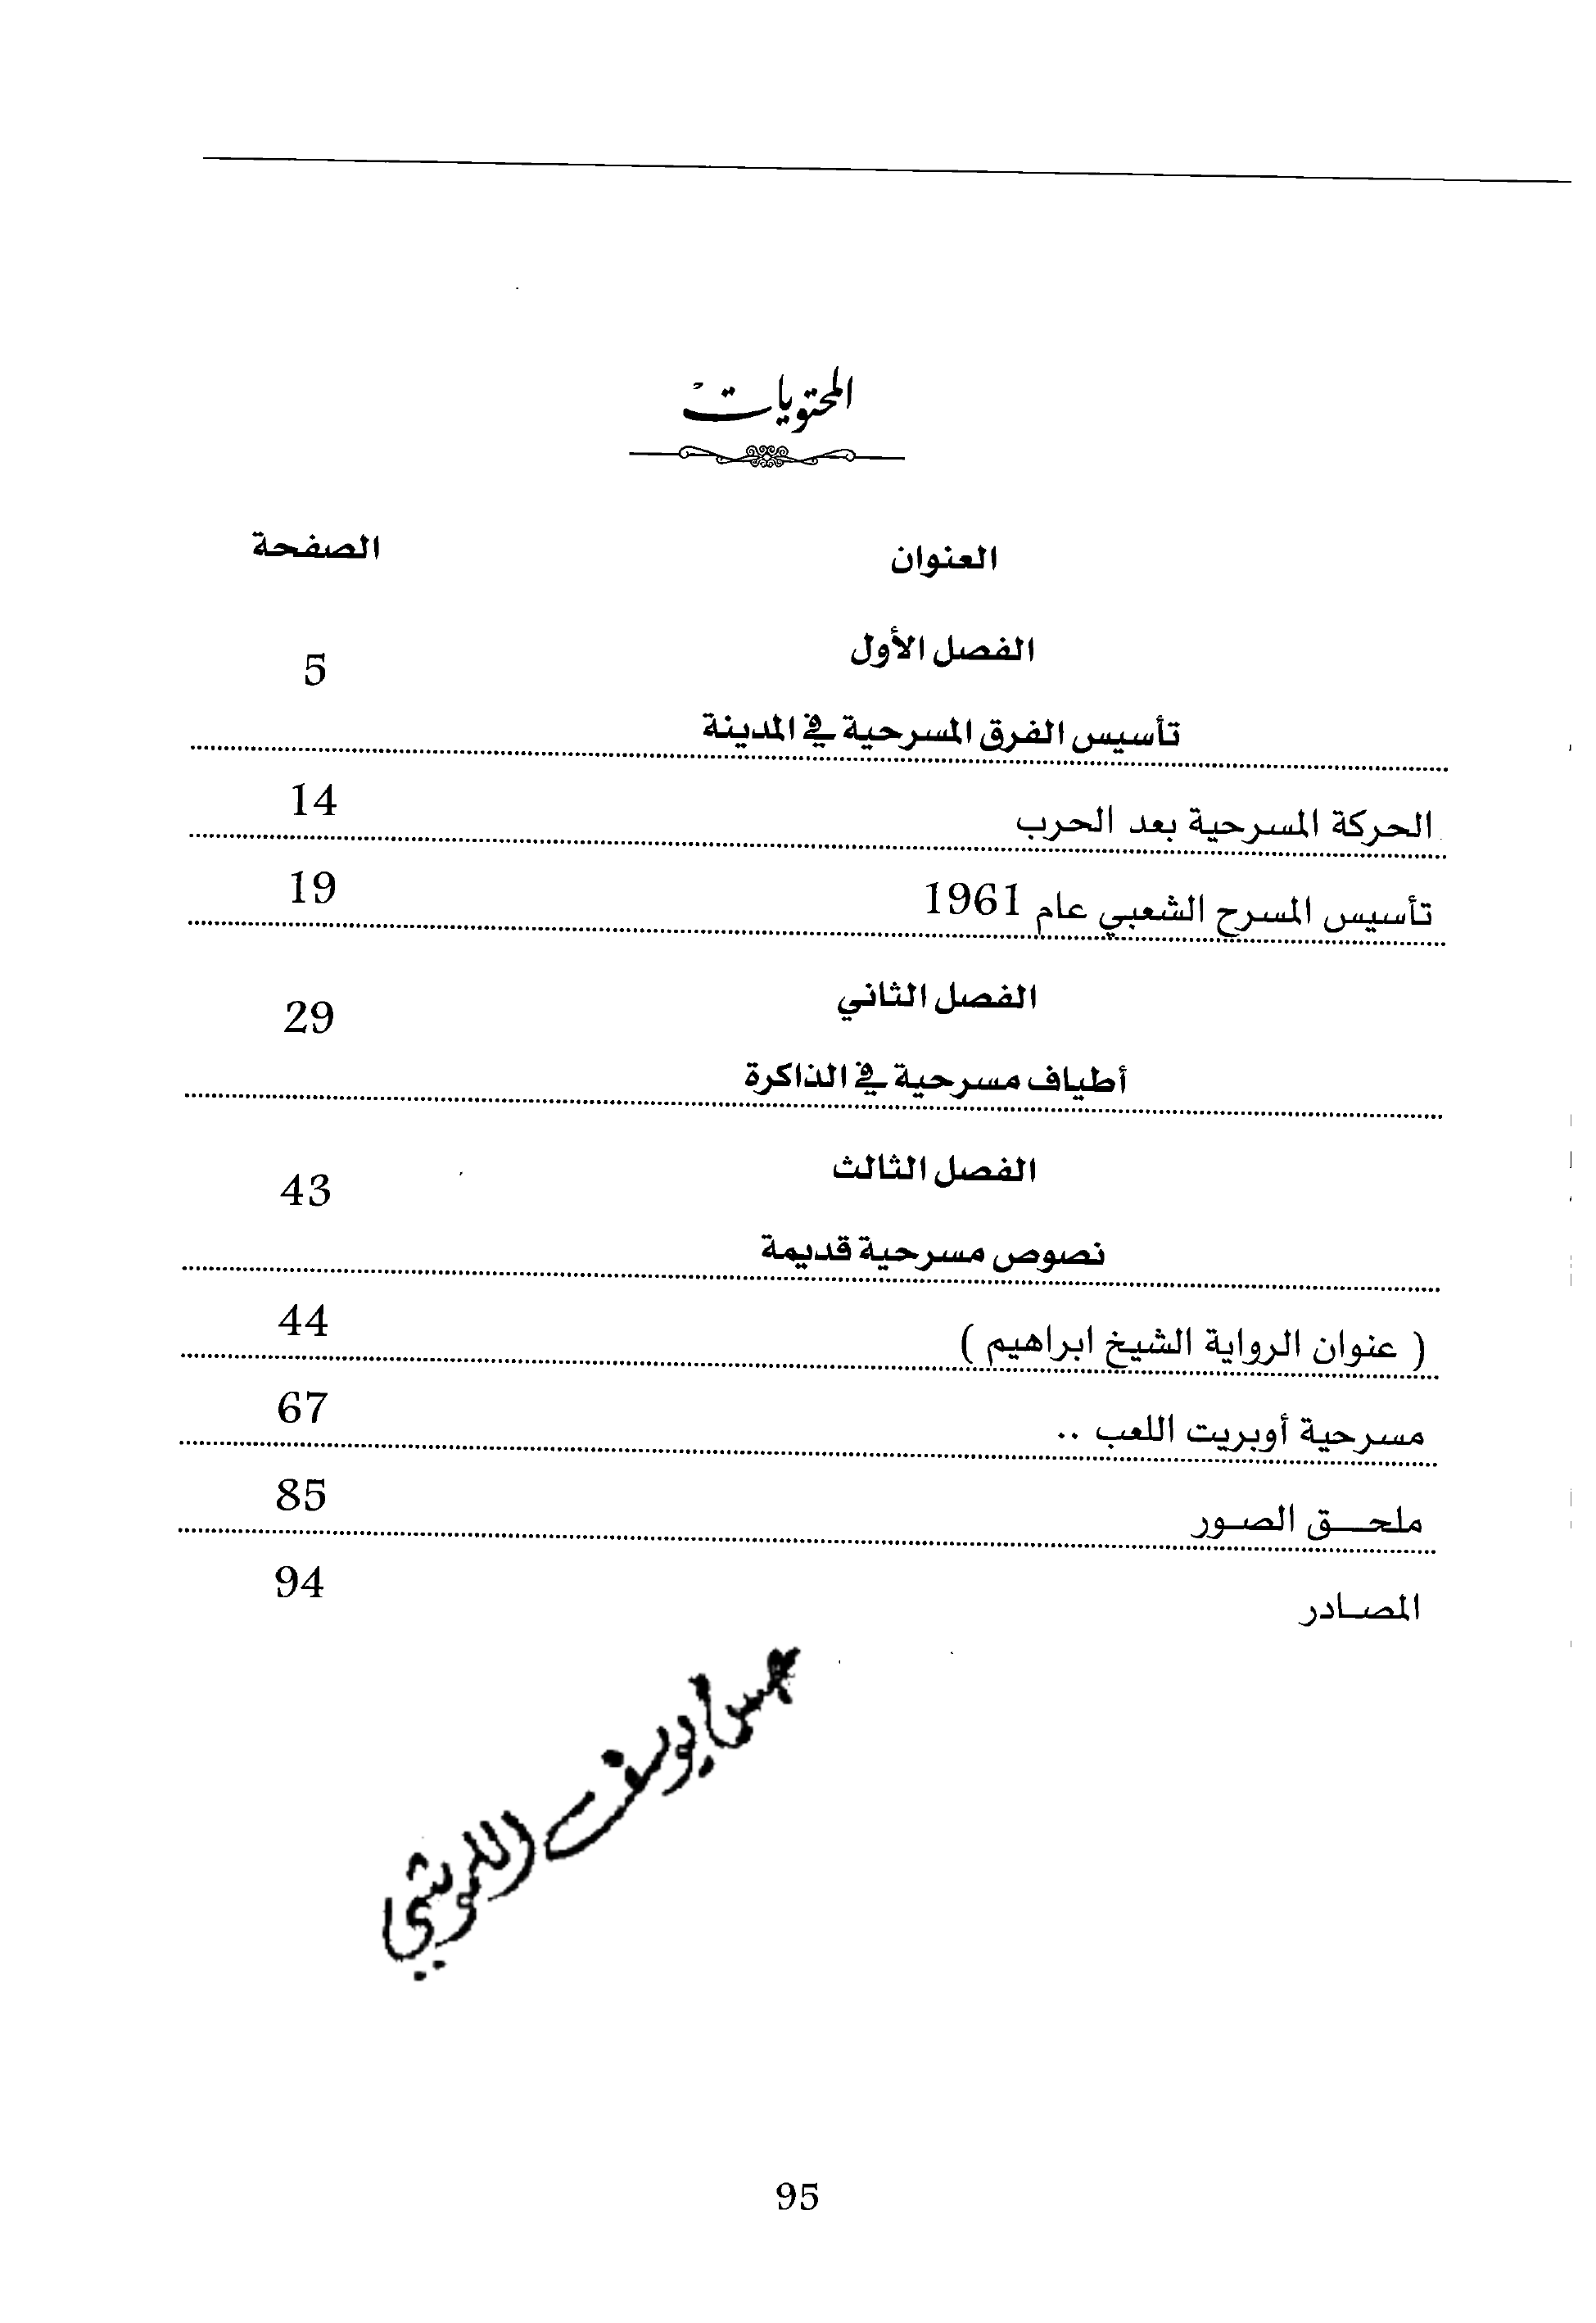 المحتويات
العنوان
الصفحة
الفصل الأول
5
تأسيس الفرق المسرحية في المدينة
الحركة المسرحية بعد الحرب
14
تأسيس المسرح الشعبي عام 1961
19
الفصل الثاني
29
أطياف مسرحية في الذاكرة
الفصل الثالث
43
نصوص مسرحية قديمة
( عنوان الرواية الشيخ ابراهيم )
44
مسرحية أوبريت اللعب ..
67
ملحــق الصـور
85
المصـادر
94
يوسف
95